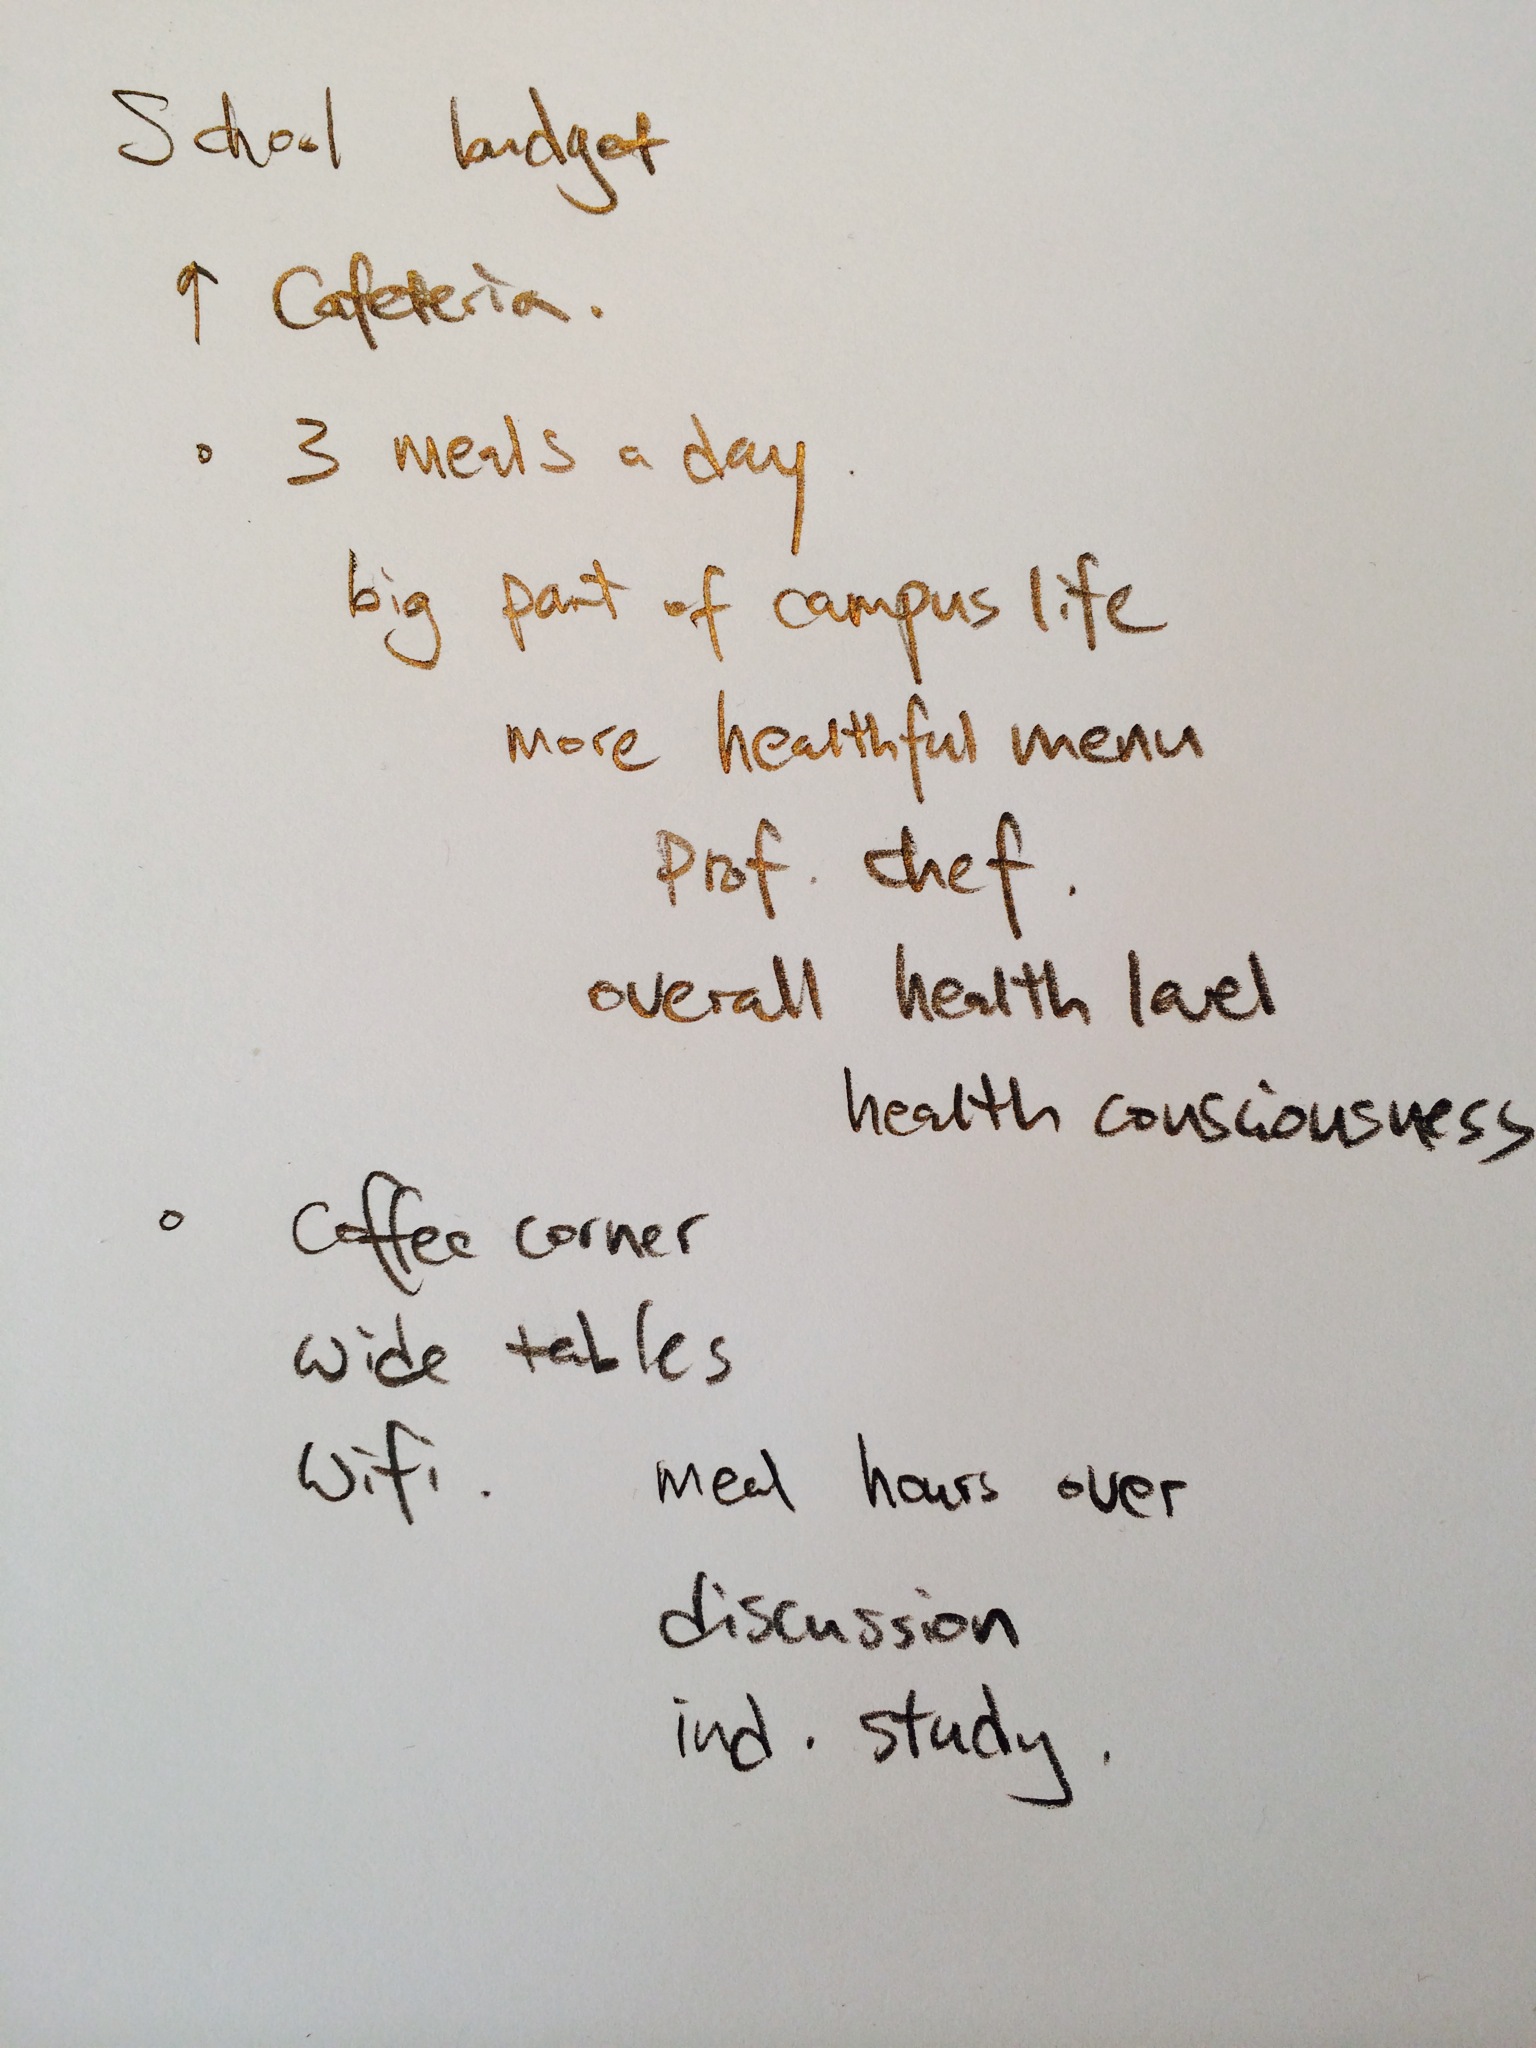 School budget
↑ Cafeteria.
◦ 3 meals a day.
big part of campus life
more healthful menu
Prof. chef.
overall health level
health consciousness
◦ Coffee corner
wide tables
Wifi. meal hours over
discussion
ind. study.